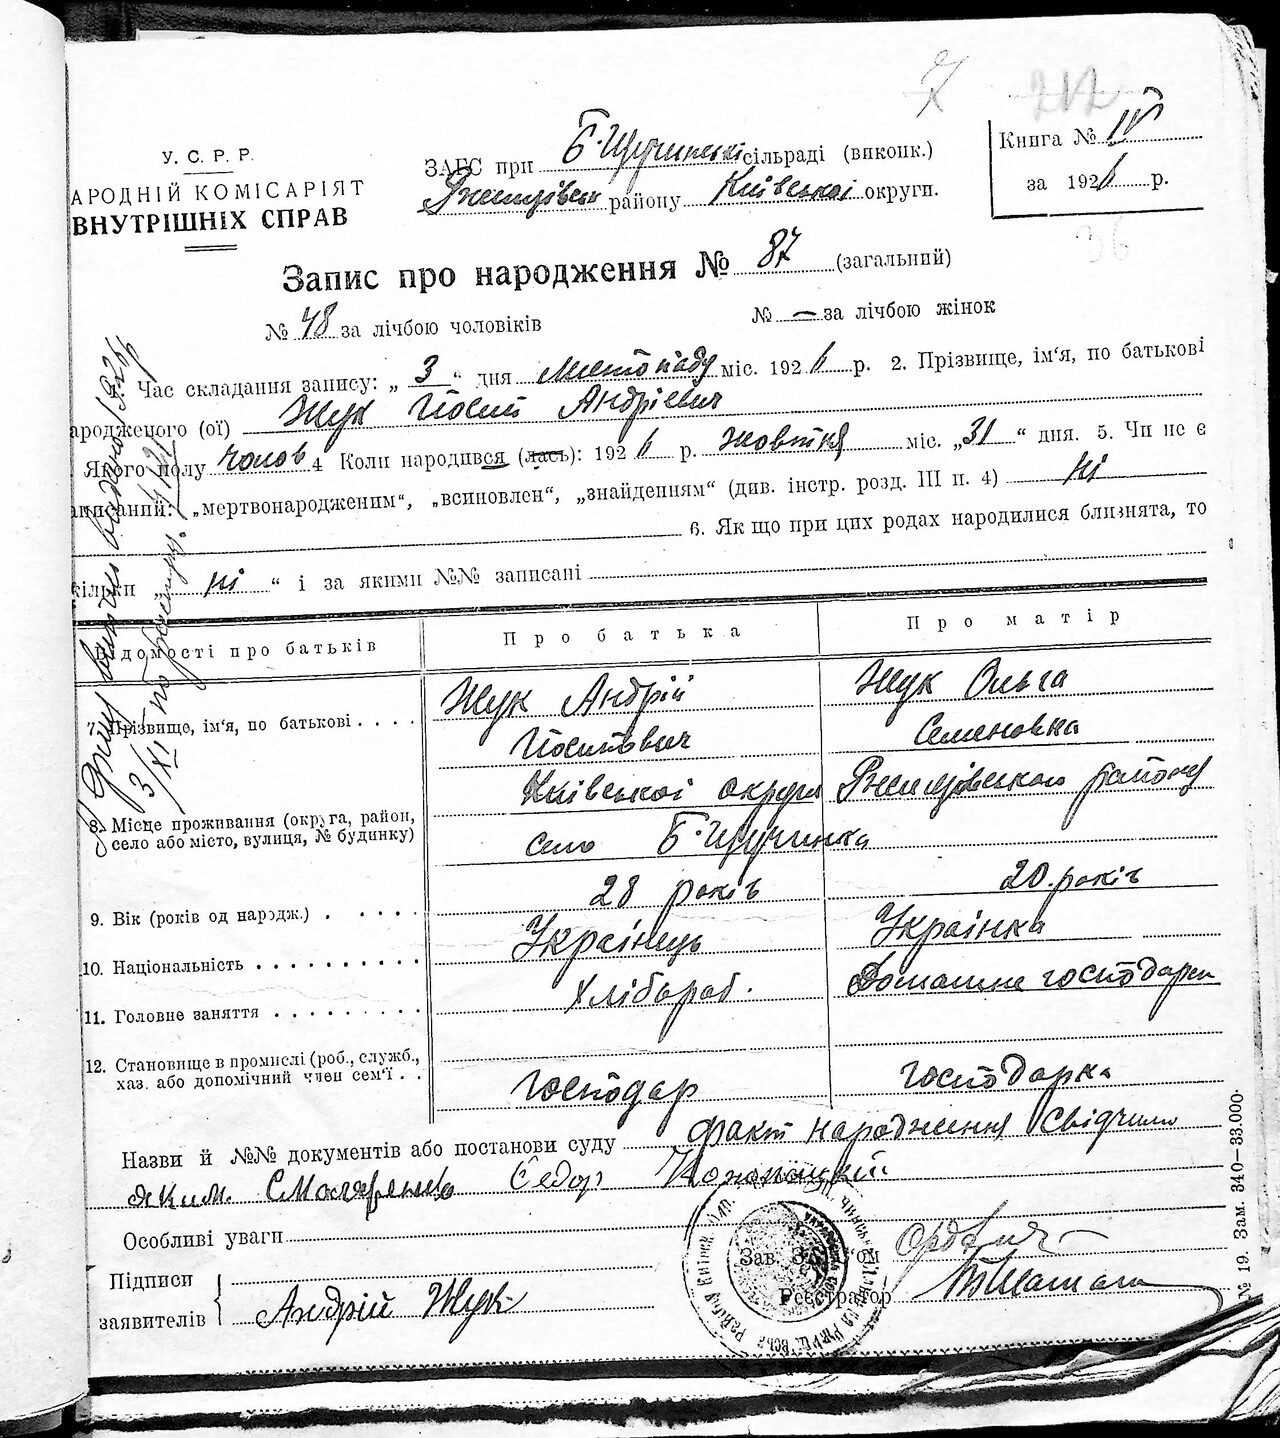 У. С. Р. Р.
АРОДНІЙ КОМІСАРІЯТ
ВНУТРІШНІХ СПРАВ
ЗАГС при Б-Щучинські сільраді (виконк.)
району Київської округи.
Книга № IV
за 1926 р.
36
Запис про народження № 87 (загальний)
№ 48 за лічбою чоловіків № — за лічбою жінок
Час складання запису: „ 3 “ дня Листопаду міс. 1926 р. 2. Прізвище, ім'я, по батькові
ародженого (ої) Жук Йосип Андрієвич
Якого полу чолов 4 Коли народився (лась): 1926 р. жовтня міс. „31“ дня. 5. Чи не є
аписаний: „мертвонародженим“, „всиновлен“, „знайденням“ (див. інстр. розд. III п. 4) ні
6. Як що при цих родах народилися близнята, то
кільки „ ні “ і за якими №№ записані
ідомості про батьків Про батька Про матір
7. Прізвище, ім'я, по батькові Жук Андрій Жук Ольга
Йосипович Семеновна
Київської округи Ржищівського району
8. Місце проживання (округа, район,
село або місто, вулиця, № будинку) село Б-Щучинка
9. Вік (років од народж.) 28 років 20 років
10. Національність Українець Українка
11. Головне заняття Хлібороб. Домашне господарка
12. Становище в промислі (роб., служб.,
хаз. або допомічний член сем'ї Господар господарка
Назви й №№ документів або постанови суду факт народження свідчили
Яким Федор
Особливі уваги
Підписи
заявителів Андрій Жук
Зав. ЗАГС'ом
Реєстратор
№ 19. Зам. 340—33.000.